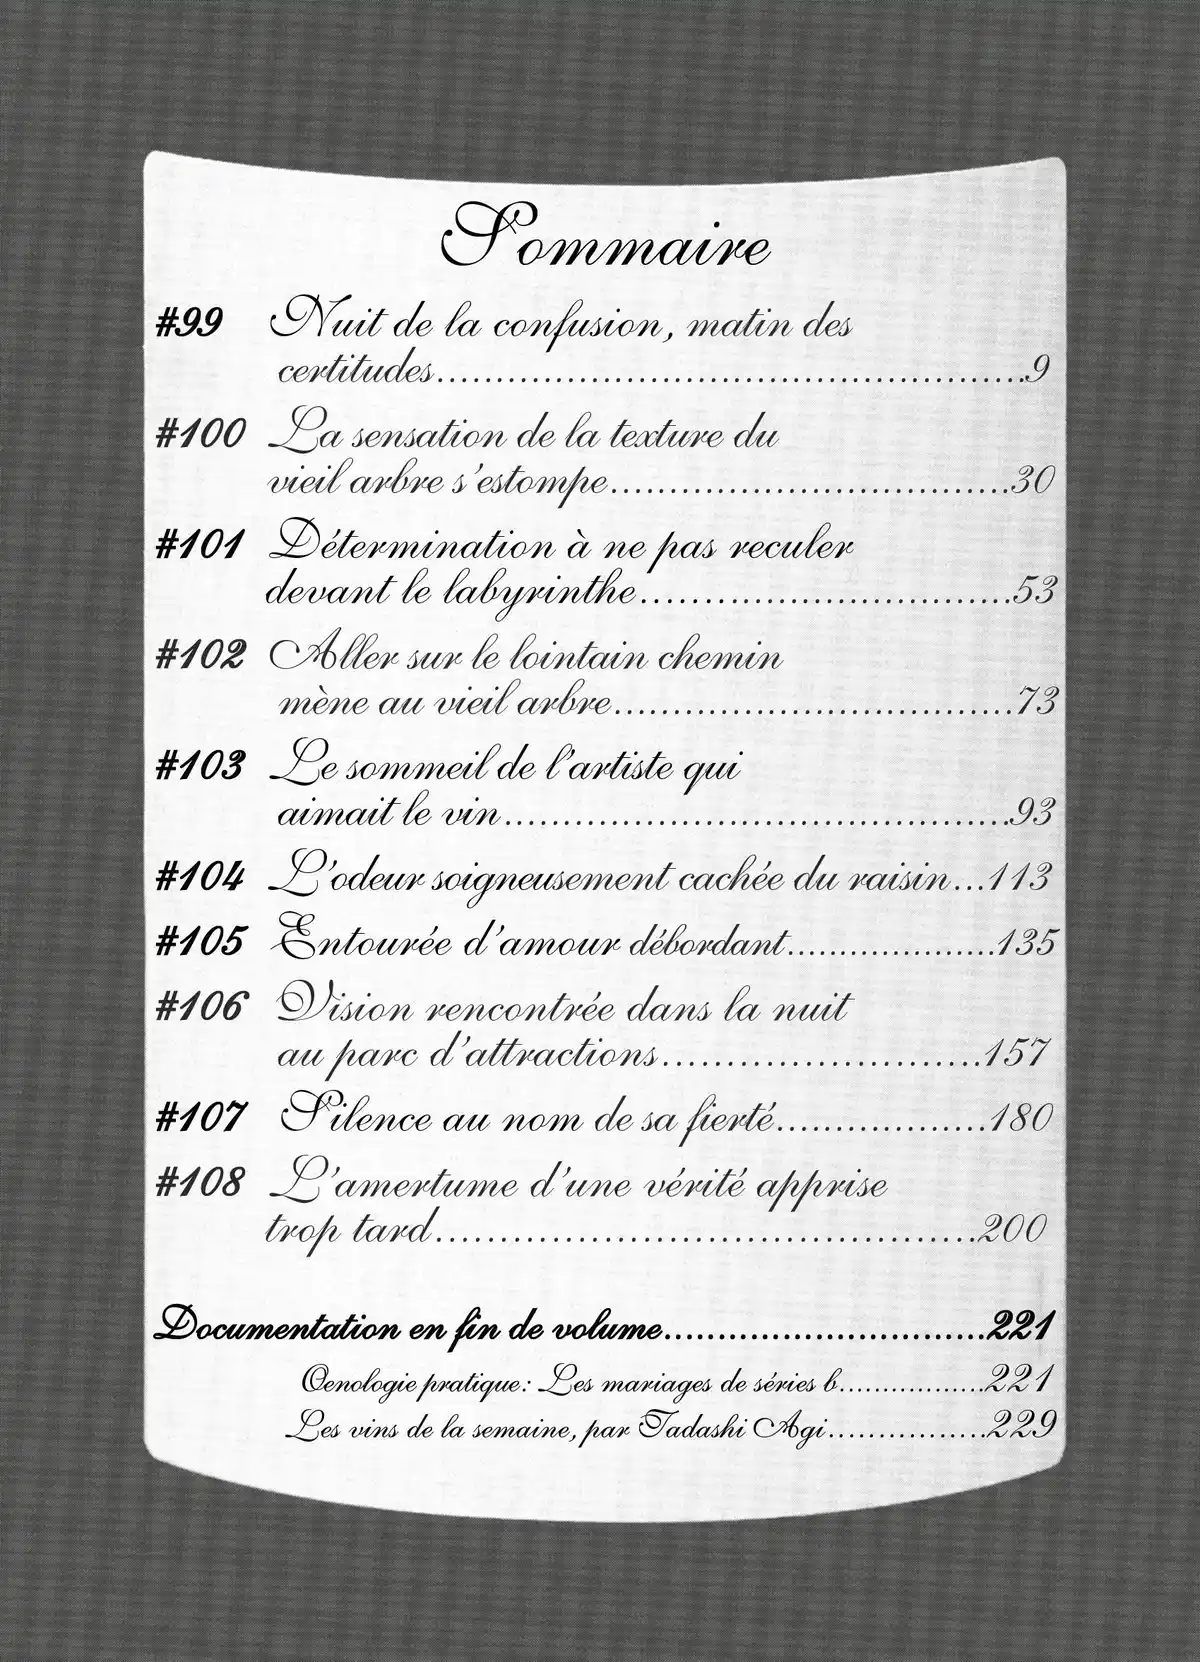 Sommaire
#99 Nuit de la confusion, matin des
certitudes..................................................9
#100 La sensation de la texture du
vieil arbre s'estompe..................................30
#101 Détermination à ne pas reculer
devant le labyrinthe................................53
#102 Aller sur le lointain chemin
mène au vieil arbre..................................73
#103 Le sommeil de l'artiste qui
aimait le vin...........................................93
#104 L'odeur soigneusement cachée du raisin...113
#105 Entourée d'amour débordant....................135
#106 Vision rencontrée dans la nuit
au parc d'attractions...........................157
#107 Silence au nom de sa fierté..................180
#108 L'amertume d'une vérité apprise
trop tard..............................................200
Documentation en fin de volume..............................221
Oenologie pratique: Les mariages de séries b.................221
Les vins de la semaine, par Tadashi Agi................229